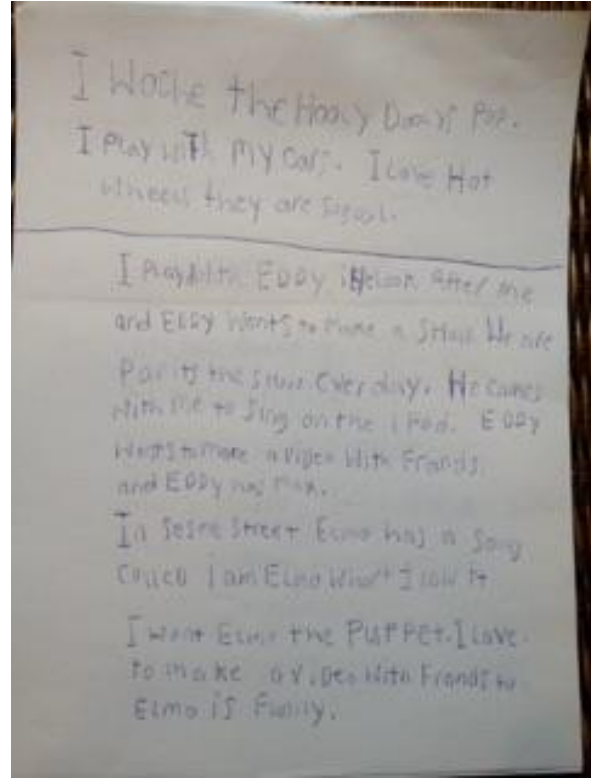 I the Hooly Dooly
I Play with My cars. I Love Hot
wheels they are
I Play with EDDY After me
and EDDY Wants to make a Show We are
the show Every day. He comes
with me to Sing on the iPad. EDDY
Wants to make a video With Frands
and EDDY has Max.
In Street Elmo has a Song
I am Elmo
I want Elmo the PUPPET. I Love
to make a video with Frands to
Elmo is Funny.